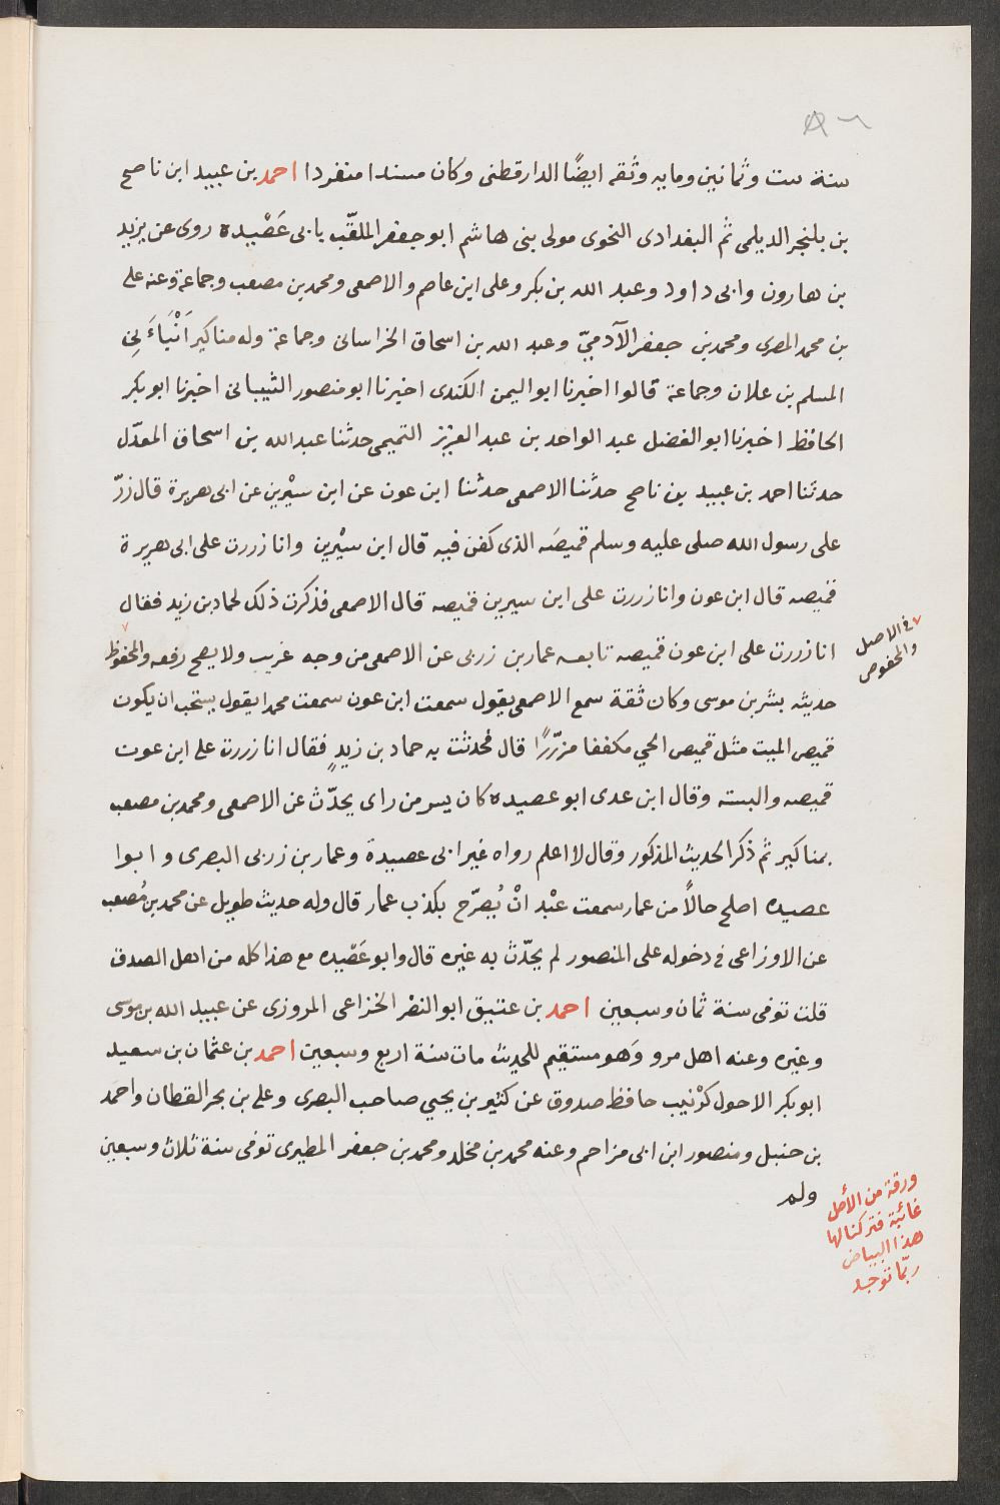 ٨٦
سنة ست وثمانين ومايه وثقه ايضًا الدارقطنى وكان مسندا منفردا احمد بن عبيد ابن ناصح
بن بلنجر الديلمى ثم البغدادى النحوى مولى بنى هاشم ابو جعفر الملقّب بابى عَصْيده روى عن يزيد
بن هارون وابى داود وعبد الله بن بكر وعلى ابن عاصم والاصمعى ومحمد بن مصعب وجماعة وعنه على
بن محمد المصرى ومحمد بن جعفر الآدميّ وعبد الله بن اسحاق الخراسانى وجماعة وله مناكير اَنْبَاءَنِى
المسلم بن علان وجماعة قالوا اخبرنا ابو اليمن الكندى اخبرنا ابو منصور الشيبانى اخبرنا ابو بكر
الحافظ اخبرنا ابو الفضل عبد الواحد بن عبد العزيز التميمى حدثنا عبد الله بن اسحاق المعدّل
حدثنا احمد بن عبيد بن ناصح حدثنا الاصمعى حدثنا ابن عون عن ابن سيْرين عن ابى هريرة قال زرّ
على رسول الله صلى عليه وسلم قميصَه الذى كفن فيه قال ابن سيْرين وانا زررت على ابى هريرة
قميصه قال ابن عون وانا زررت على ابن سيرين قميصه قال الاصمعى فذكرت ذلك لحماد بن زيد فقال
انا زررت على ابن عون قميصه تابعه عمار بن زربى عن الاصمعى من وجه غريب ولا يصح رفعه والمحفوظ
٧ فى الاصل
والمحفوص
حديثه بشر بن موسى وكان ثقة سمع الاصمعى يقول سمعت ابن عون سمعت محمدا يقول يستحب ان يكون
قميص الميت مثل قميص الحي مكففا مزرّرًا قال فحدثت به حماد بن زيدٍ فقال انا زررت على ابن عون
قميصه والبسته وقال ابن عدى ابو عصيده كان بسر من راى يحدّث عن الاصمعى ومحمد بن مصعب
بمناكير ثم ذكر الحديث المذكور وقال لا اعلم رواه غير ابى عصيدة وعمار بن زربى البصرى وابوا
عصيده اصلح حالاً من عمار سمعت عبْد انْ يُصرّح بكذب عمار قال وله حديث طويل عن محمد بن مُصعب
عن الاوزاعى فى دخوله على المنصور لم يحدّث به غيره قال وابو عَصْيده مع هذا كله من اهل الصدق
قلت توفى سنة ثمان وسبعين احمد بن عتيق ابو النضْر الخزاعى المروزى عن عبيد الله بن موسى
وغيره وعنه اهل مرو وَهو مستقيم للحديث مات سنة اربع وسبعين احمد بن عثمان بن سعيد
ابو بكر الاحول كرْنيب حافظ صدوق عن كثير بن يحيي صاحب البصرى وعلى بن بحر القطان واحمد
بن حنبل ومنصور ابن ابى مزاحم وعنه محمد بن مخلد ومحمد بن جعفر المطيرى توفى سنة ثلاث وسبعين
ولم
ورقة من الأصل
غائبة فتركنا لها
هذا البياض
ربّما توجد